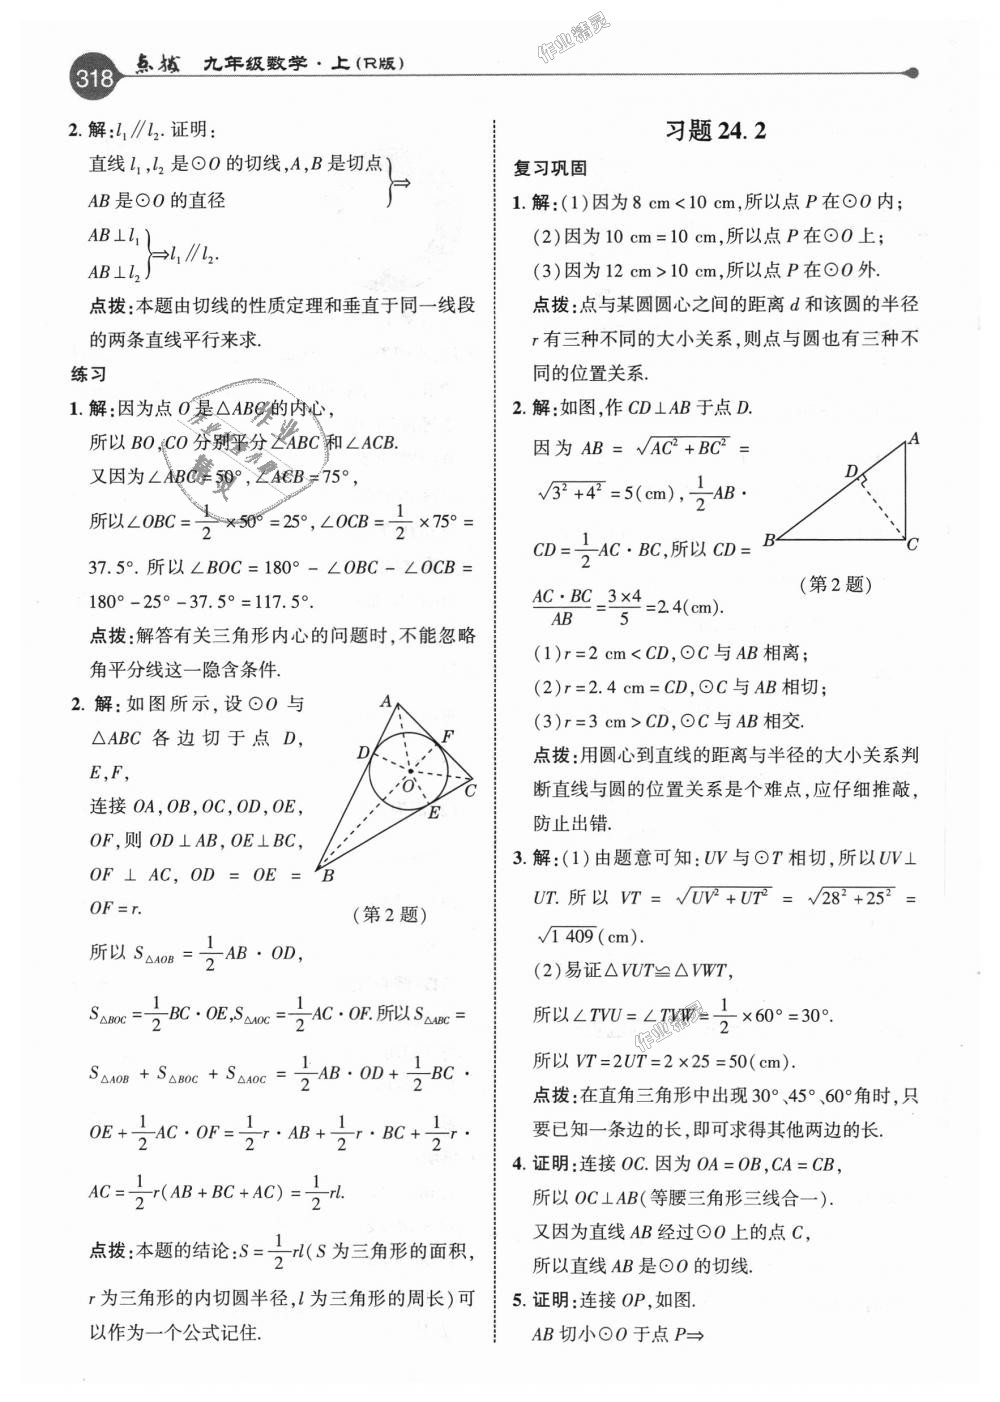 318 点拨 九年级数学·上(R版)
2. 解:l₁∥l₂. 证明:
直线 l₁,l₂ 是⊙O 的切线,A,B 是切点
AB 是⊙O 的直径 } ⇒
AB⊥l₁
AB⊥l₂ } ⇒l₁∥l₂.
点拨:本题由切线的性质定理和垂直于同一线段
的两条直线平行来求.
练习
1. 解:因为点 O 是△ABC 的内心,
所以 BO,CO 分别平分∠ABC 和∠ACB.
又因为∠ABC=50°,∠ACB=75°,
所以∠OBC=1/2×50°=25°,∠OCB=1/2×75°=
37.5°. 所以∠BOC=180°-∠OBC-∠OCB=
180°-25°-37.5°=117.5°.
点拨:解答有关三角形内心的问题时,不能忽略
角平分线这一隐含条件.
2. 解:如图所示,设⊙O 与
△ABC 各边切于点 D,
E,F,
连接 OA,OB,OC,OD,OE,
OF,则 OD⊥AB,OE⊥BC,
OF ⊥ AC, OD = OE =
OF=r.
A
F
D
O
C
E
B
(第 2 题)
所以 S△AOB=1/2AB·OD,
S△BOC=1/2BC·OE,S△AOC=1/2AC·OF. 所以 S△ABC=
S△AOB+S△BOC+S△AOC=1/2AB·OD+1/2BC·
OE+1/2AC·OF=1/2r·AB+1/2r·BC+1/2r·
AC=1/2r(AB+BC+AC)=1/2rl.
点拨:本题的结论:S=1/2rl(S 为三角形的面积,
r 为三角形的内切圆半径,l 为三角形的周长)可
以作为一个公式记住.
习题 24.2
复习巩固
1. 解:(1)因为 8 cm<10 cm,所以点 P 在⊙O 内;
(2)因为 10 cm=10 cm,所以点 P 在⊙O 上;
(3)因为 12 cm>10 cm,所以点 P 在⊙O 外.
点拨:点与某圆圆心之间的距离 d 和该圆的半径
r 有三种不同的大小关系,则点与圆也有三种不
同的位置关系.
2. 解:如图,作 CD⊥AB 于点 D.
因为 AB = √(AC²+BC²) =
√(3²+4²)=5(cm),1/2AB·
CD=1/2AC·BC,所以 CD=
AC·BC/AB=3×4/5=2.4(cm).
A
D
B
C
(第 2 题)
(1)r=2 cm<CD,⊙C 与 AB 相离;
(2)r=2.4 cm=CD,⊙C 与 AB 相切;
(3)r=3 cm>CD,⊙C 与 AB 相交.
点拨:用圆心到直线的距离与半径的大小关系判
断直线与圆的位置关系是个难点,应仔细推敲,
防止出错.
3. 解:(1)由题意可知:UV 与⊙T 相切,所以 UV⊥
UT. 所以 VT = √(UV²+UT²) = √(28²+25²) =
√(1 409)(cm).
(2)易证△VUT≌△VWT,
所以∠TVU=∠TVW=1/2×60°=30°.
所以 VT=2UT=2×25=50(cm).
点拨:在直角三角形中出现 30°、45°、60°角时,只
要已知一条边的长,即可求得其他两边的长.
4. 证明:连接 OC. 因为 OA=OB,CA=CB,
所以 OC⊥AB(等腰三角形三线合一).
又因为直线 AB 经过⊙O 上的点 C,
所以直线 AB 是⊙O 的切线.
5. 证明:连接 OP,如图.
AB 切小⊙O 于点 P⇒
作业精灵
作业精灵